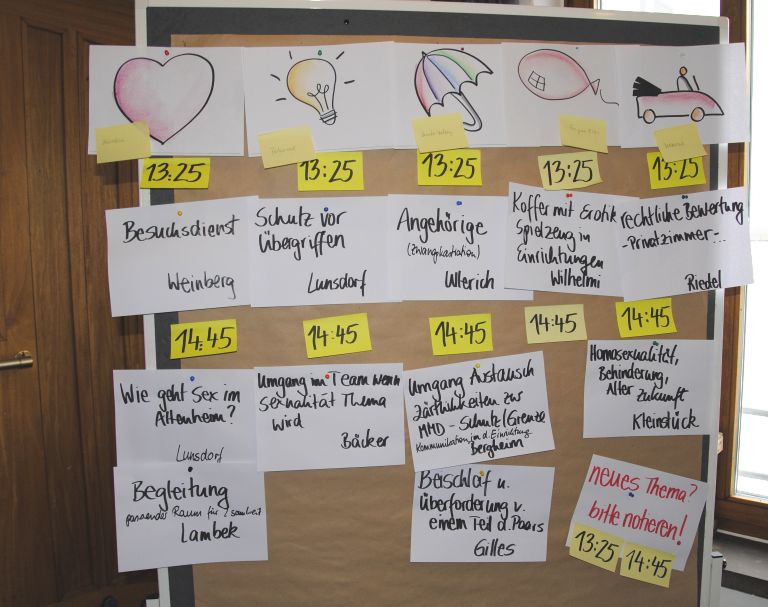 13:25
13:25
13:25
13:25
13:25
Besuchsdienst
Weinberg
Schutz vor
Übergriffen
Lunsdorf
Angehörige
(Zwangskastration)
Ullerich
Koffer mit Erotik
Spielzeug in
Einrichtungen
Wilhelmi
rechtliche Bewertung
- Privatzimmer...
Riedel
14:45
14:45
14:45
14:45
14:45
Wie geht Sex im
Altenheim?
Lunsdorf
Umgang im Team wenn
Sexualität Thema
wird
Bäcker
Umgang Austausch
Zärtlichkeiten zw
MMD - Schutz/Grenze
Kommunikation in d. Einrichtung
Bergheim
Homosexualität,
Behinderung,
Alter Zukunft
Kleinstück
Begleitung
passender Raum für
Lambek
Beischlaf u.
Überforderung v.
einem Teil d. Paars
Gilles
neues Thema?
bitte notieren!
13:25
14:45